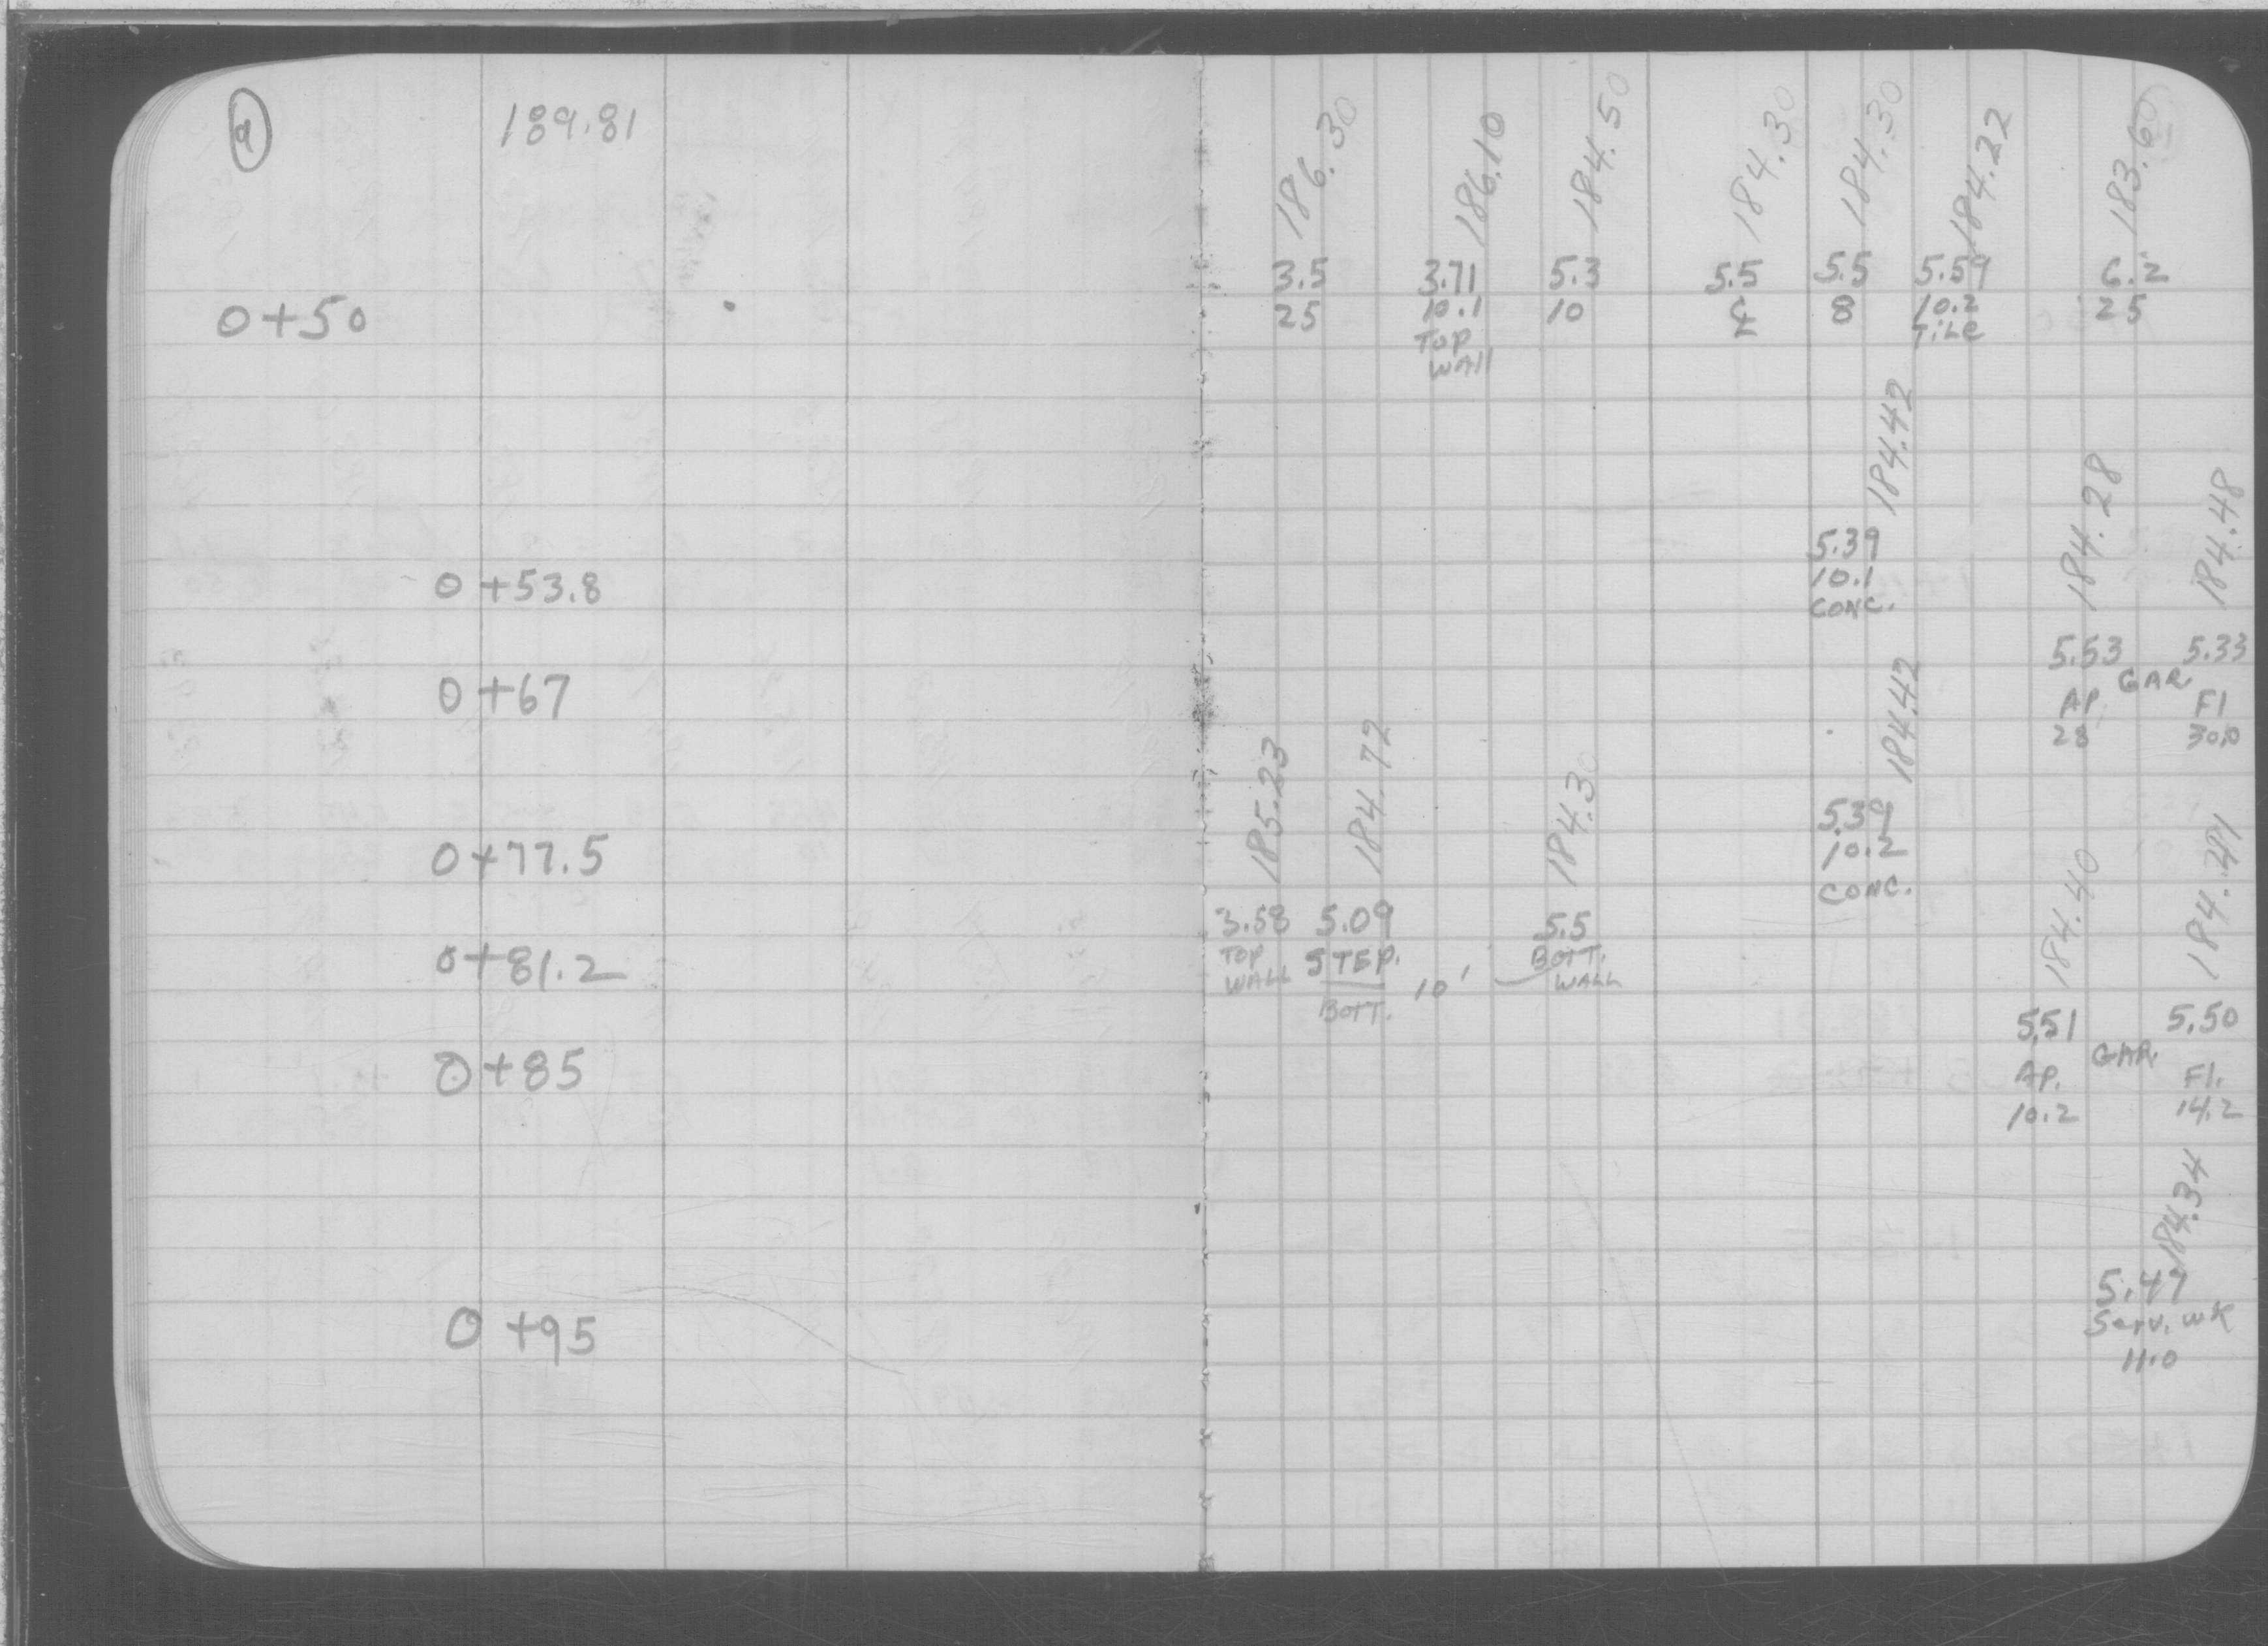 9
189.81
186.30 186.10 184.50 184.30 184.30 184.22 183.60
3.5 3.71 5.3 5.5 5.5 5.59 6.2
0+50 25 10.1 10 ℄ 8 10.2 25
TOP TiLe
WAll
184.42 184.28 184.48
5.39
0+53.8 10.1
CONC.
5.53 5.33
GAR.
0+67 AP. Fl
28 30.0
185.23 184.72 184.30 184.42
5.39
0+77.5 10.2
CONC.
184.40
3.58 5.09 5.5
0+81.2 TOP STEP. BOTT.
WALL 10' WALL
BOTT.
5.51 5.50
GAR.
0+85 AP. Fl.
10.2 14.2
184.34
5.47
0+95 Serv. wk
11.0